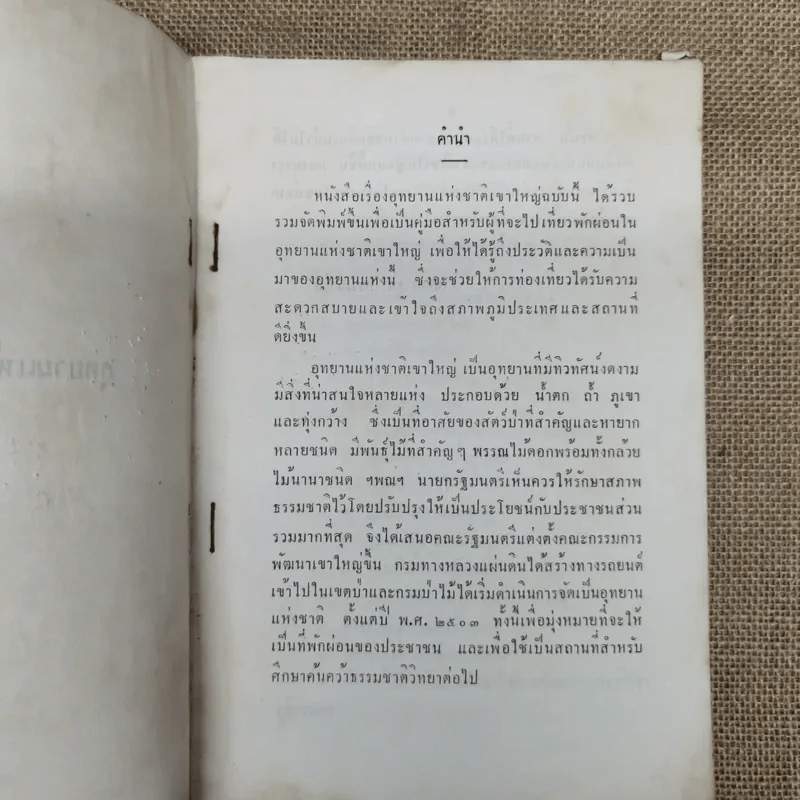 คำนำ
หนังสือเรื่องอุทยานแห่งชาติเขาใหญ่ฉบับนี้ ได้รวบ
รวมจัดพิมพ์ขึ้นเพื่อเป็นคู่มือสำหรับผู้ที่จะไปเที่ยวพักผ่อนใน
อุทยานแห่งชาติเขาใหญ่ เพื่อให้ได้รู้ถึงประวัติและความเป็น
มาของอุทยานแห่งนี้ ซึ่งจะช่วยให้การท่องเที่ยวได้รับความ
สะดวกสบายและเข้าใจถึงสภาพภูมิประเทศและสถานที่
ดียิ่งขึ้น
อุทยานแห่งชาติเขาใหญ่ เป็นอุทยานที่มีทิวทัศน์งดงาม
มีสิ่งที่น่าสนใจหลายแห่ง ประกอบด้วย น้ำตก ถ้ำ ภูเขา
และทุ่งกว้าง ซึ่งเป็นที่อาศัยของสัตว์ป่าที่สำคัญและหายาก
หลายชนิด มีพันธุ์ไม้ที่สำคัญๆ พรรณไม้ดอกพร้อมทั้งกล้วย
ไม้นานาชนิด ฯพณฯ นายกรัฐมนตรีเห็นควรให้รักษาสภาพ
ธรรมชาติไว้โดยปรับปรุงให้เป็นประโยชน์กับประชาชนส่วน
รวมมากที่สุด จึงได้เสนอคณะรัฐมนตรีแต่งตั้งคณะกรรมการ
พัฒนาเขาใหญ่ขึ้น กรมทางหลวงแผ่นดินได้สร้างทางรถยนต์
เข้าไปในเขตป่าและกรมป่าไม้ได้เริ่มดำเนินการจัดเป็นอุทยาน
แห่งชาติ ตั้งแต่ปี พ.ศ. ๒๕๐๓ ทั้งนี้เพื่อมุ่งหมายที่จะให้
เป็นที่พักผ่อนของประชาชน และเพื่อใช้เป็นสถานที่สำหรับ
ศึกษาค้นคว้าธรรมชาติวิทยาต่อไป